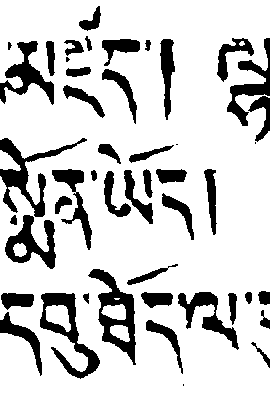 མཛོད། ལྷ
སྨོན་ཡོད།
དབུ་ཐོད་ལ་